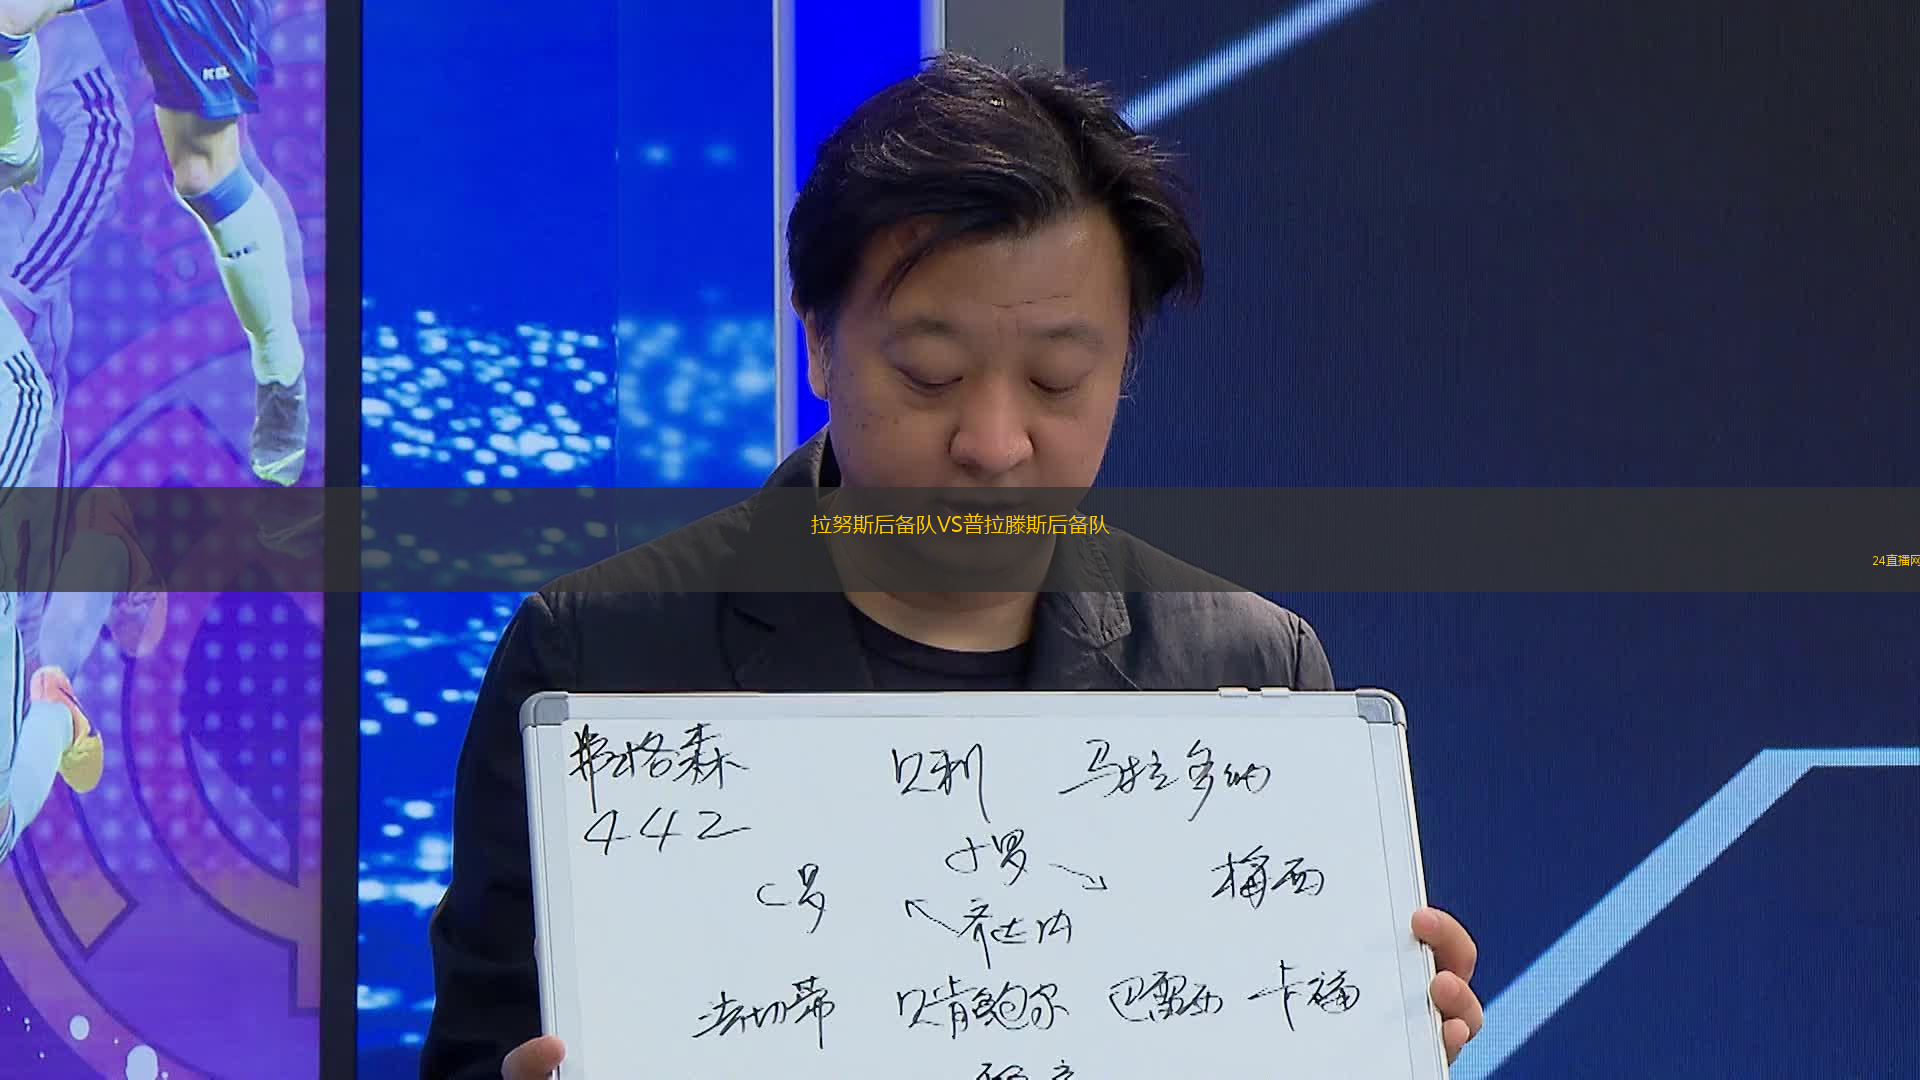 拉努斯后备队VS普拉滕斯后备队
24直播网
弗格森 贝利 马拉多纳
442
小罗
C罗 梅西
齐达内
法切蒂 贝肯鲍尔 巴雷西 卡福